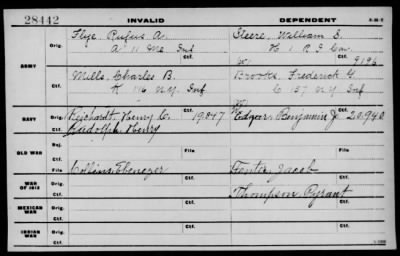 28442 INVALID DEPENDENT
Flye, Rufus A. Steere, William S.
Orig. A 11 Me Inf H 1 R I Cav.
ARMY
Ctf. 9196
Mills, Charles B. Brooks, Frederick G
Orig. K 116 N.Y. Inf C 157 N.Y. Inf
Ctf.
NAVY Orig. Reichardt Henry C. 19047 Edgar, Benjamin J. 20940
Ctf. Rudolph Henry
Rej.
OLD WAR
File Collins, Ebenezer Fenter, Jacob
WAR OF 1812 Orig.
Ctf. Thompson, Pyrant
MEXICAN WAR Orig.
Ctf.
INDIAN WAR Orig.
Ctf.